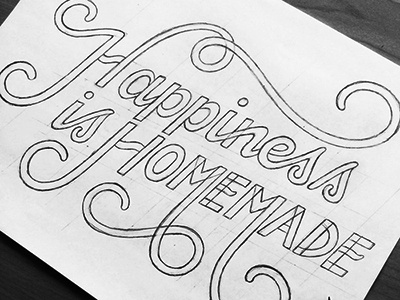 Happiness
is HOMEMADE